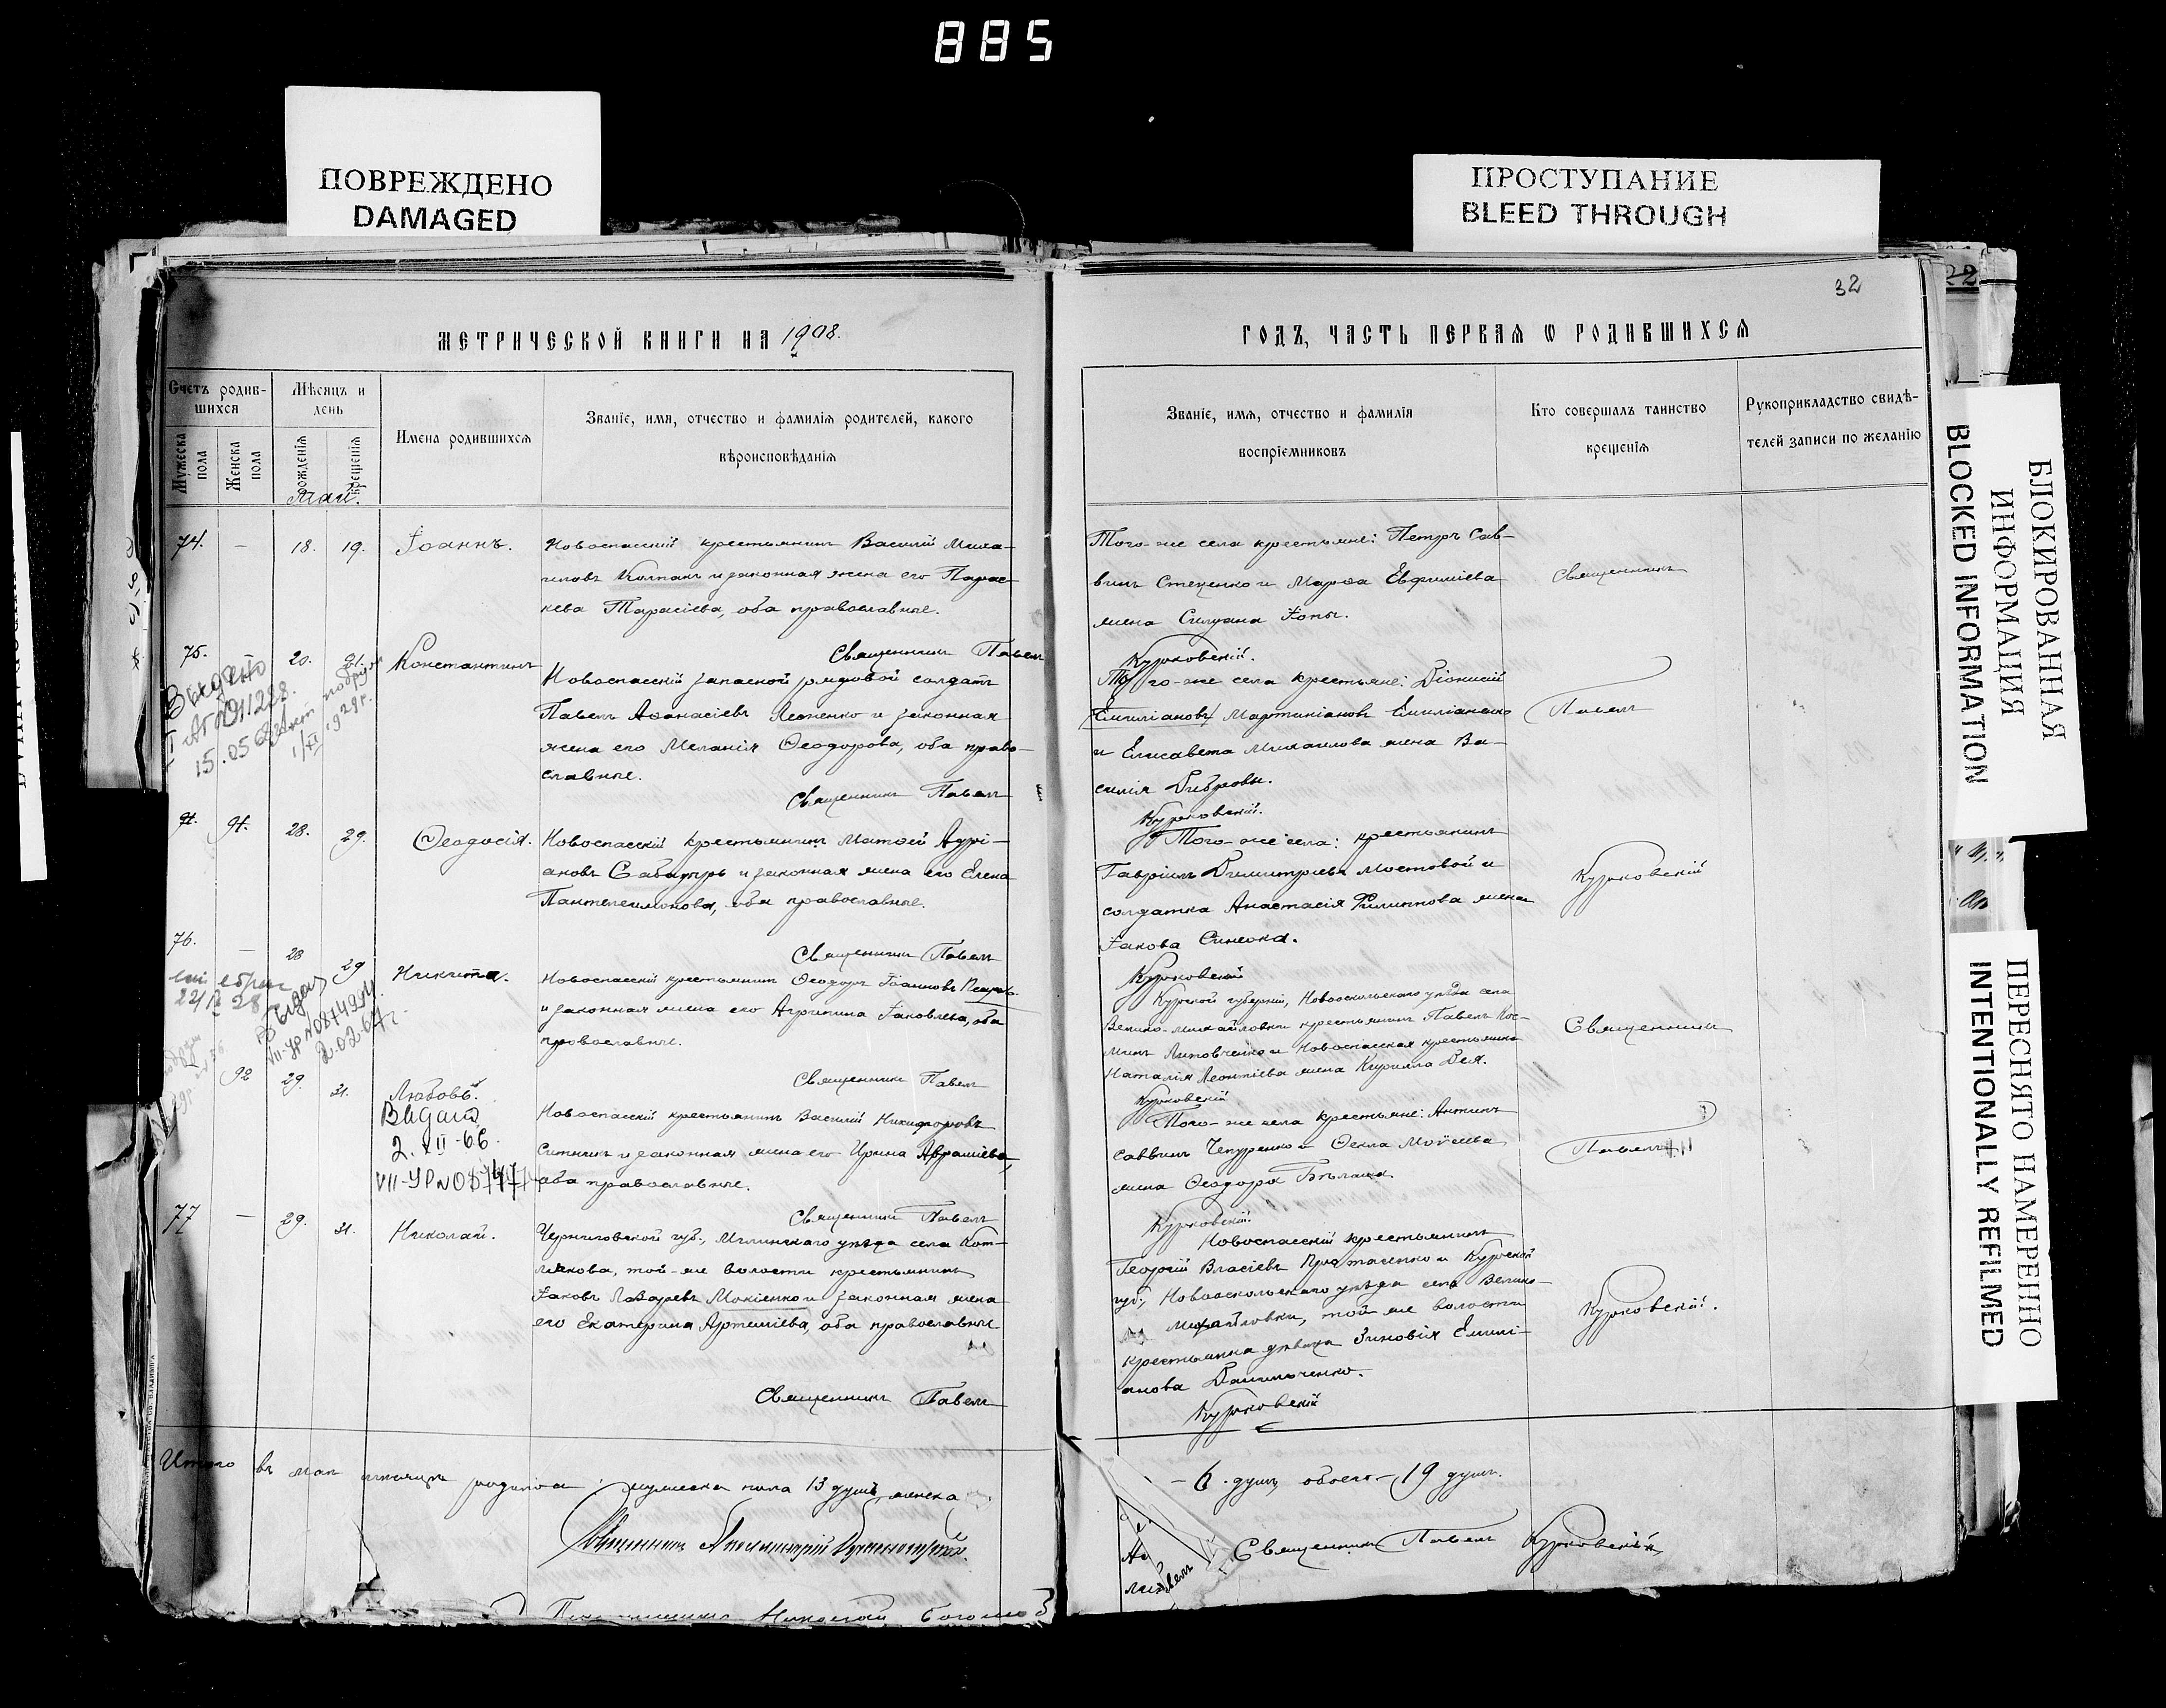 885
ПОВРЕЖДЕНО
DAMAGED
ПРОСТУПАНИЕ
BLEED THROUGH
22
32
МЕТРИЧЕСКОЙ КНИГИ НА 1908.
ГОДЪ, ЧАСТЬ ПЕРВАЯ Ѡ РОДИВШИХСЯ
Счетъ родив-
шихся
Мужеска
пола
Женска
пола
Мѣсяцъ и
день
рожденія
крещенія
Май.
Имена родившихся
Званіе, имя, отчество и фамилія родителей, какого
вѣроисповѣданія
Званіе, имя, отчество и фамилія
воспріемниковъ
Кто совершалъ таинство
крещенія
Рукоприкладство свидѣ-
телей записи по желанію
74. – 18. 19. Іоаннъ.
Новоспасскій крестьянинъ Василій Миха-
иловъ Колпакъ и законная жена его Парас-
кева Тарасіева, оба православные.
Священникъ Павелъ
Того-же села крестьяне: Петръ Сав-
винъ Стеценко и Марѳа Евфиміева
жена Силуана Зопы.
Курковскій.
Священникъ
75. 20. 21. Константинъ
Выдано
15.05.68
1929г.
Новоспасскій запасной рядовой солдатъ
Павелъ Аѳанасіевъ Леоненко и законная
жена его Меланія Ѳеодорова, оба право-
славные.
Священникъ Павелъ
Того-же села крестьяне: Діонисій
(Емиліановъ) Мартиніановъ Емиліаненко
и Елисавета Михаилова жена Ва-
силія Дибровы.
Курковскій.
Павелъ
91. 28. 29. Ѳеодосія.
Новоспасскій крестьянинъ Матѳей Адрі-
ановъ Сабатырь и законная жена его Елена
Пантелеимонова, оба православные.
Священникъ Павелъ
Того-же села: крестьянинъ
Гавріилъ Димитріевъ Мостовой и
солдатка Анастасія Филиппова жена
Іакова Синеока.
Курковскій
Курковскій
76. – 28 29 Никита.
Выдан
2.02.67г.
Новоспасскій крестьянинъ Ѳеодоръ Іоанновъ
и законная жена его Агрипина Іаковлева, оба
православные.
Священникъ Павелъ
Курской губерніи, Новооскольскаго уѣзда села
Велико-Михайловки крестьянинъ Павелъ Кос-
минъ Липовченко и Новоспасская крестьянка
Наталія Леонтіева жена Кирилла Дея.
Курковскій
Священникъ
92 29. 31. Любовь.
Выдан
2.XII-66.
Новоспасскій крестьянинъ Василій Никифоровъ
Ситникъ и законная жена его Ирина Авраміева,
оба православные.
Священникъ Павелъ
Того-же села крестьяне: Антипъ
Саввинъ Чепуренко и Ѳекла Моѵсеева
жена Ѳеодора Бѣлика.
Курковскій.
Павелъ
77 – 29. 31. Николай.
Черниговской губ., Мглинскаго уѣзда села Кот-
лякова, той-же волости крестьянинъ
Іаковъ Лазаревъ Мокіенко и законная жена
его Екатерина Артеміева, оба православные
Священникъ Павелъ
Новоспасскій крестьянинъ
Георгій Власіевъ Протасенко и Курской
губ., Новооскольскаго уѣзда села Велико-
Михайловки, той же волости
крестьянка дѣвица Зиновія Емилі-
анова Данильченко.
Курковскій
Курковскій.
Итого въ маѣ мѣсяцѣ родилось: мужеска пола 13 душъ, женска
– 6. душъ обоего – 19 душъ.
Священникъ
Священникъ Павелъ Курковскій
Николай
БЛОКИРОВАННАЯ
ИНФОРМАЦИЯ
BLOCKED INFORMATION
ПЕРЕСНЯТО НАМЕРЕННО
INTENTIONALLY REFILMED